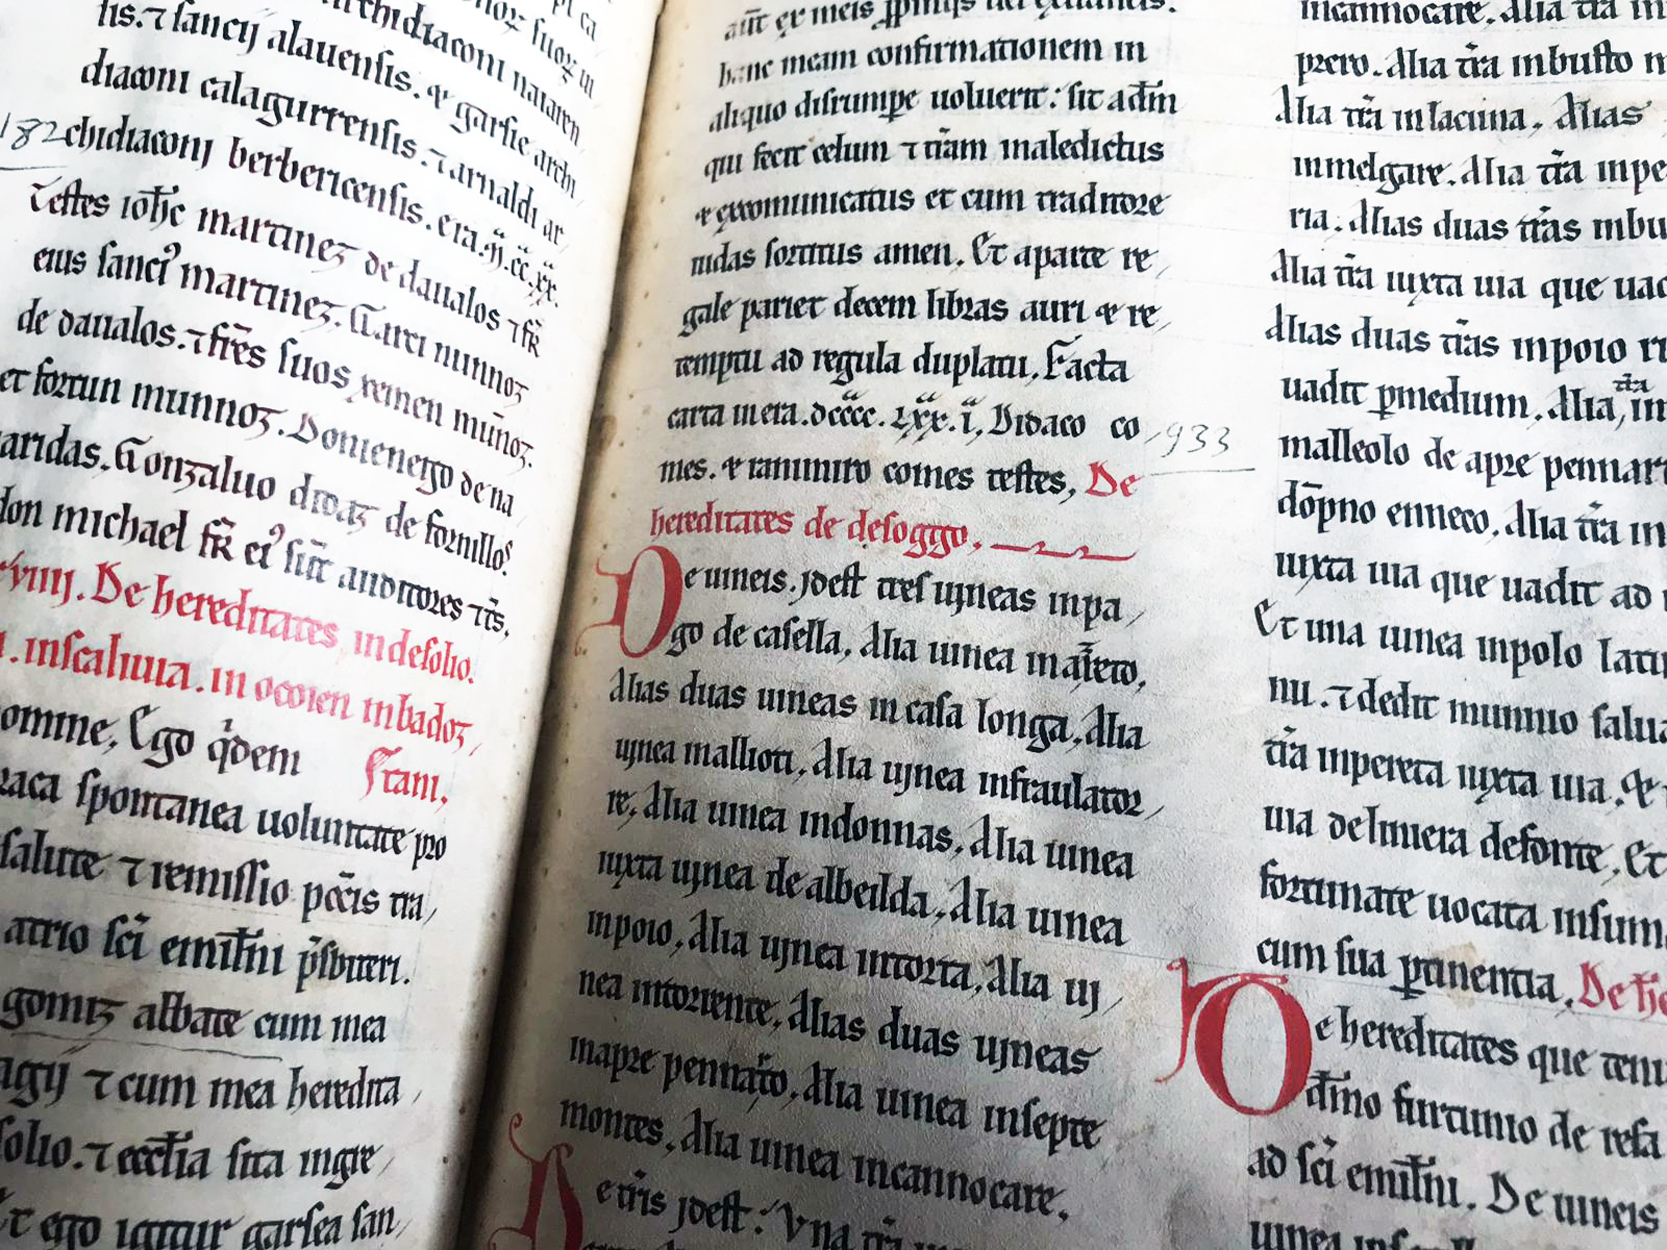 lis. ⁊ sancij alauensis. & garsie archi
diaconi calagurrensis. ⁊ arnaldi ar
182
chidiaconj berbericensis. era. ṁ. cc. xx.
Testes ioħe martinez de daualos ⁊ fr̄
eius sancꝰ martinez. Garci nunnoz
de daualos. ⁊ fr̄es suos xemen mūnoz.
et fortun munnoz. Domenego de na
aridas. Gonzaluo didaz de fornillos
don michael fr̄ eiꝰ sūt auditores ⁊ t̄s.
viiij. De hereditates in desolio.
. in scaliuia. in ocoien in badoz,
omne, Ego q̄dem
Stani.
raca spontanea uoluntate pro
salute ⁊ remissio pōcis tra,
atrio sc̄i emil̄ni p̄sbiteri.
gomiz abbate cum mea
agij ⁊ cum mea heredita,
solio. ⁊ eccl̄ia sita ingre,
Et ego igitur garsea san,
hanc meam confirmationem in
aliquo disrumpe uoluerit: sit a dn̄
qui fecit celum ⁊ tr̄am maledictus
& excomunicatus et cum traditore
iudas sortitus amen. Et aparte re,
gale pariet decem libras auri & re,
temptu ad regula duplatu, Facta
carta in era. dcccc. lxx. i, Didaco co,
933
mes. & ranimiro comes testes, De
hereditates de desoggo.
De uineis. jdest tres ujneas in pa,
go de casella, Alia uinea in at̄reto,
Alias duas uineas in casa longa, Alia
ujnea mallioti, Alia ujnea infraulator,
re, Alia uinea indonnas, Alia uinea
iuxta ujnea de albeilda, Alia uinea
inpoio, Alia ujnea intorta, Alia uj,
nea intoriente, Alias duas ujneas
inapre pennato, Alia uinea insepte
montes, Alia uinea incannocare,
De tr̄is jdest: Vna tr̄a in
incannocare. Alia tr̄a in
prero. Alia tr̄a inbusto
Alia tr̄a inlacuna, Alias
inmelgare. Alia tr̄a inpe
ria. Alias duas tr̄as inbu
Alia tr̄a iuxta uia que uad
Alias duas tr̄as inpoio
uadit p̱medium. Alia, tr̄a in
malleolo de apre pennat
dōpno enneco. Alia tr̄a in
iuxta uia que uadit ad
Et una uinea inpolo
nu. ⁊ dedit munnio salua
tr̄a inpereta iuxta uia. &
uia delimiera defonte, Et
fortunate uocata insum
cum sua p̱tinentia, De h̄e
De hereditates que tenu
dn̄o furtunio de resa
ad sc̄i emil̄ni. De uineis